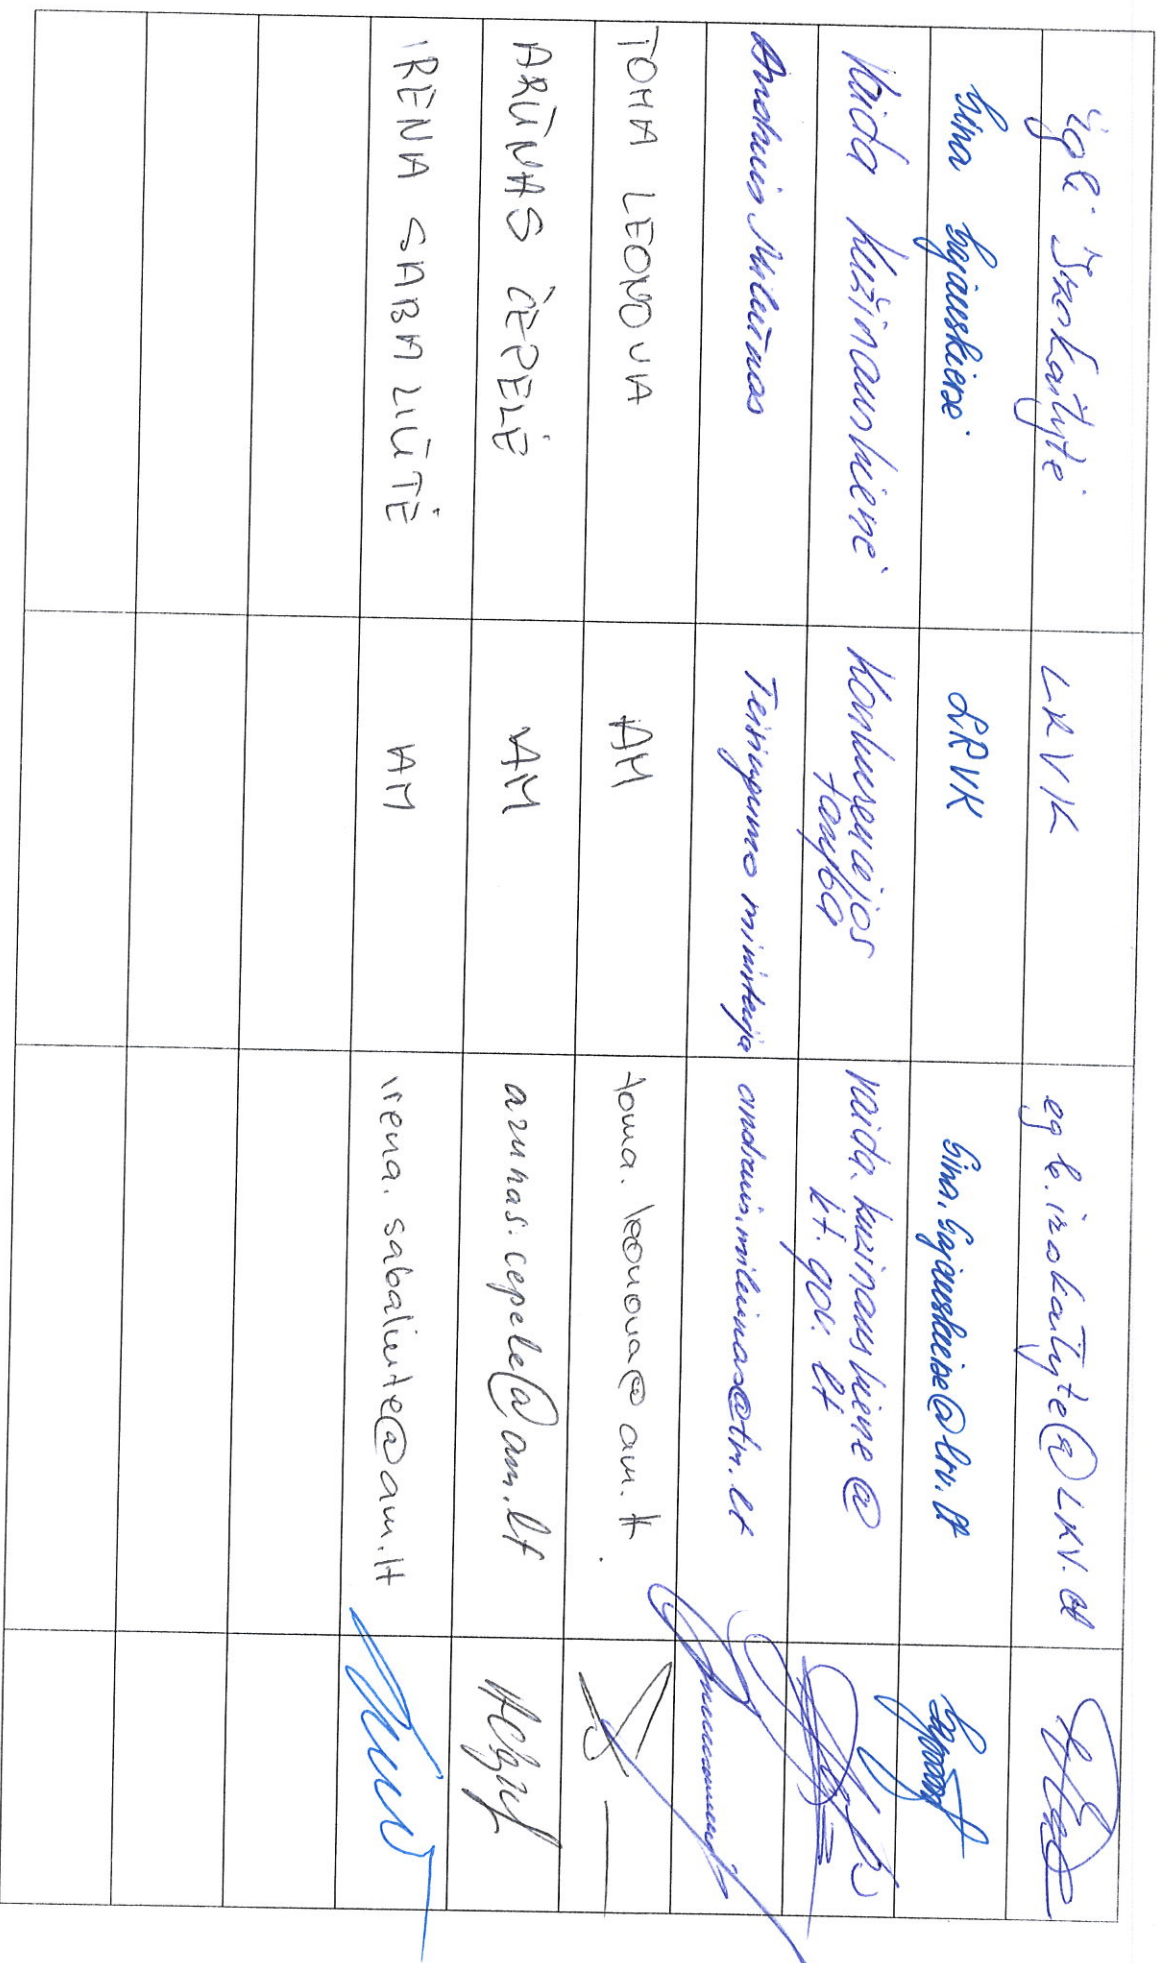 Eglė Izokaitytė LRVK egle.izokaityte@LRV.lt
Gina Gajauskienė LRVK Gina.Gajauskiene@lrv.lt
Vaida Kužinauskienė Konkurencijos vaida.kuzinauskiene@
taryba kt.gov.lt
Andrius Miliūnas Teisingumo ministerija andrius.miliunas@tm.lt
TOMA LEONOVA AM toma.leonova@am.lt
ARŪNAS ČEPELĖ AM arunas.cepele@am.lt
IRENA SABALIŪTĖ AM irena.sabaliute@am.lt